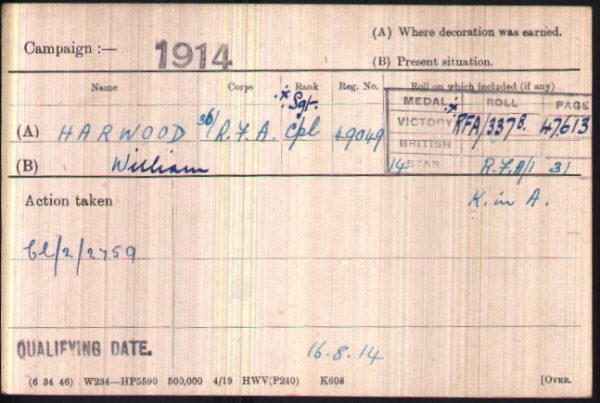 (A) Where decoration was earned.
Campaign :— 1914
(B) Present situation.
Name Corps Rank Reg. No. Roll on which included (if any)
MEDAL ROLL PAGE
x Sgt.
(A) HARWOOD 36/ R.F.A. Cpl 49049 VICTORY x RFA/337B. 47613
BRITISH
(B) William 14 STAR R.F.A/1 31
Action taken K. in A.
Cl/2/2759
QUALIFYING DATE. 16.8.14
(6 34 46) W234—HP5590 500,000 4/19 HWV(P240) K608 [OVER.